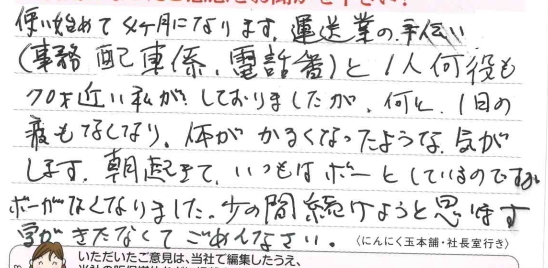 使い始めて4ヶ月になります。運送業の手伝い
(事務 配車係、電話番)と1人何役も
70才近い私が、しておりましたが、何と、1日の
疲もなくなり。体がかるくなったような、気が
します。朝起きて、いつもはボーとしているのですが
ボーがなくなりました。少の間続けようと思います
字がきたなくてごめんなさい。
〈にんにく玉本舗・社長室行き〉
いただいたご意見は、当社で編集したうえ、